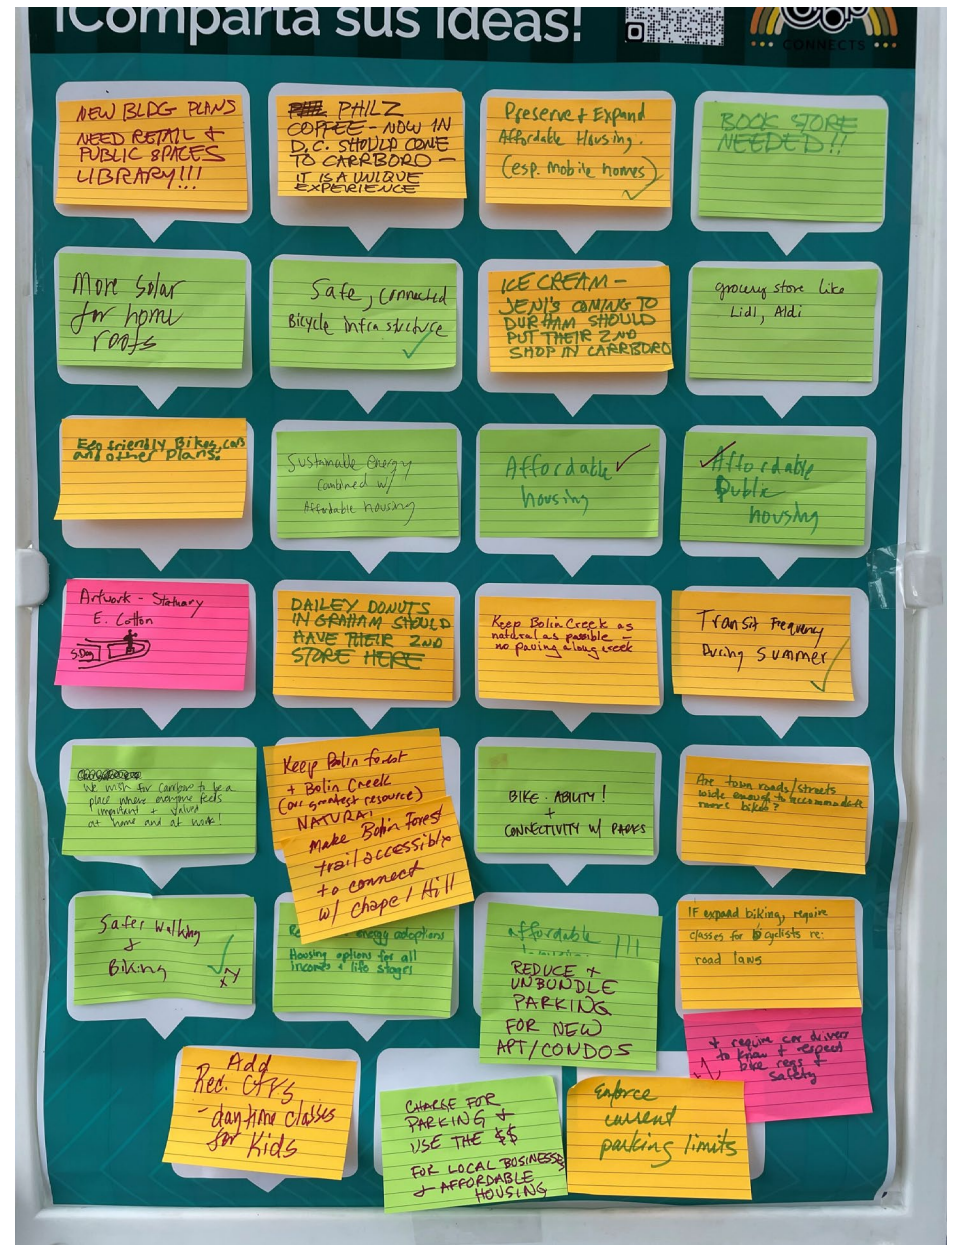 ¡Comparta sus ideas!
CONNECTS
NEW BLDG PLANS
NEED RETAIL +
PUBLIC SPACES
LIBRARY!!!
PHILZ
COFFEE - NOW IN
D.C. SHOULD COME
TO CARRBORO -
IT IS A UNIQUE
EXPERIENCE
Preserve + Expand
Affordable Housing.
(esp. mobile homes)
BOOK STORE
NEEDED!!
More Solar
for home
roofs
Safe, connected
Bicycle infrastructure
ICE CREAM -
JENI'S COMING TO
DURHAM SHOULD
PUT THEIR 2ND
SHOP IN CARRBORO
grocery store like
Lidl, Aldi
Eco friendly Bikes, cars
and other Plans.
Sustainable energy
Combined w/
Affordable housing
Affordable
housing
Affordable
Public
housing
Artwork - Statuary
E. Cotton
S.Dog
DAILEY DONUTS
IN GRAHAM SHOULD
HAVE THEIR 2ND
STORE HERE
Keep Bolin Creek as
natural as possible -
no paving along creek
Transit Frequency
During Summer
We wish for Carrboro to be a
place where everyone feels
important + valued
at home and at work!
Keep Bolin forest
+ Bolin Creek
(our greatest resource)
NATURAL
Make Bolin Forest
trail accessible
to connect
w/ Chapel Hill
BIKE-ABILITY!
+
CONNECTIVITY W/ PARKS
Are town roads/streets
wide enough to accommodate
more bikes?
Safer Walking
&
Biking
energy adoptions
Housing options for all
incomes + life stages
affordable !!!!
REDUCE +
UNBUNDLE
PARKING
FOR NEW
APT/CONDOS
IF expand biking, require
classes for bicyclists re:
road laws
+ require car drivers
to know + respect
bike regs +
safety
Add
Rec. CTRS
- daytime classes
for Kids
CHARGE FOR
PARKING +
USE THE $$
FOR LOCAL BUSINESSES
+ AFFORDABLE
HOUSING
Enforce
current
parking limits